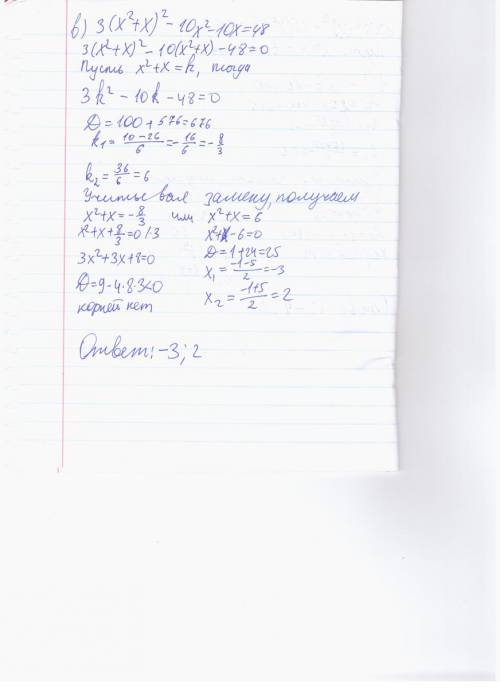 в) 3(x²+x)² - 10x² - 10x = 48
3(x²+x)² - 10(x²+x) - 48 = 0
Пусть x²+x = k, тогда
3k² - 10k - 48 = 0
D = 100 + 576 = 676
k₁ = (10-26)/6 = -16/6 = -8/3
k₂ = 36/6 = 6
Учитывая замену, получаем
x²+x = -8/3 или x²+x = 6
x²+x+8/3 = 0 |·3 x²+x-6 = 0
3x²+3x+8 = 0 D = 1+24 = 25
D = 9-4·8·3<0 x₁ = (-1-5)/2 = -3
корней нет x₂ = (-1+5)/2 = 2
Ответ: -3; 2